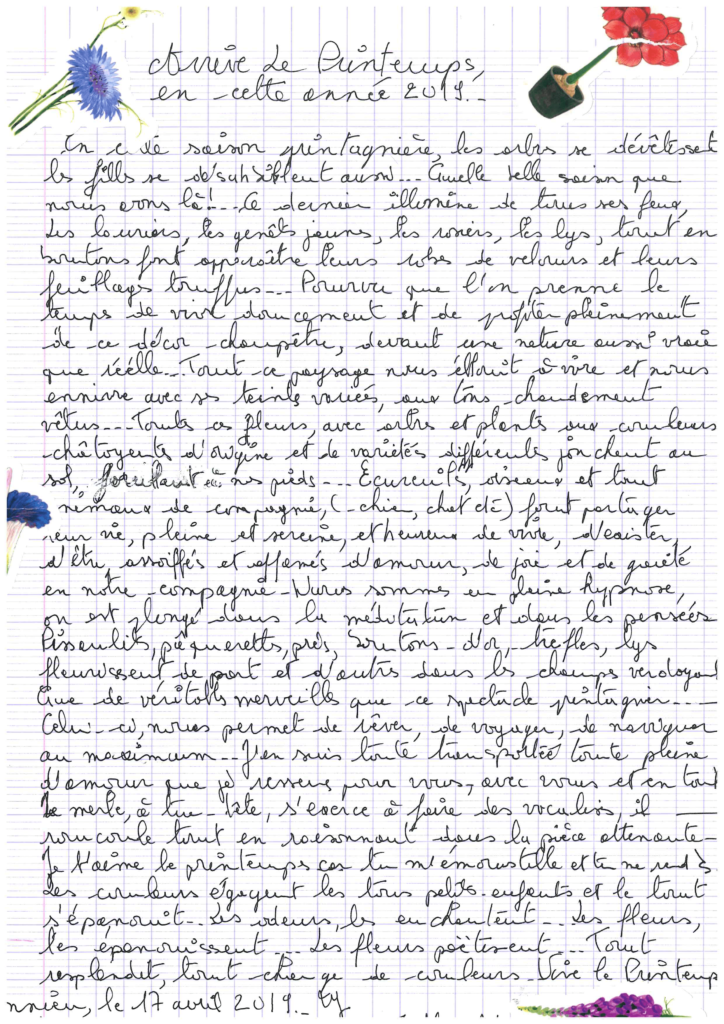 Arrive Le Printemps,
en cette année 2019.--
En cette saison printagnière, les arbres se dévêtissent
les filles se déshabillent aussi... Quelle belle saison que
nous avons là!... Ce dernier illumine de tous ses feux,
Les lauriers, les genêts jaunes, les rosiers, les lys, tout en
boutons font apparaître leurs robes de velours et leurs
feuillages touffus... Pourvu que l'on prenne le
temps de vivre doucement et de profiter pleinement
de ce décor champêtre, devant une nature aussi vraie
que réelle... Tout ce paysage nous éblouit à vivre et nous
ennivre avec ses teintes variées, aux tons chaudement
vêtus... Toutes ces fleurs, avec arbres et plants aux couleurs
châtoyantes d'origine et de variétés différentes jonchent au
sol, à nos pieds... Ecureuils, oiseaux et tout
nimaux de compagnie, (chien, chat etc) font partager
leur vie, pleine et sereine, et heureux de vivre, d'exister,
d'être assoiffés et affamés d'amour, de joie et de gaieté
en notre compagnie. Nous sommes en pleine hypnose,
on est plongé dans la méditation et dans les pensées
Pissenlits, pâquerettes, près, boutons-d'or, trèfles, lys
fleurissent de part et d'autres dans les champs verdoyant
Que de véritables merveilles que ce spectacle printagnier...
Celui-ci, nous permet de rêver, de voyager, de naviguer
au maximum... J'en suis toute transportée toute pleine
d'amour que je ressens pour vous, avec vous et en tout
Le merle, à tue-tête, s'exerce à faire des vocalises, il
roucoule tout en raisonnant dans la pièce attenante-
Je t'aime le printemps car tu m'émoustille et tu me rends
Les couleurs égayent les tous petits-enfants et le tout
s'épanouit... Les odeurs, les enchantent... Les fleurs,
les épanouissent... Les fleurs poëtisent... Tout
resplendit, tout change de couleurs... Vive le Printemp
nnieu, le 17 avril 2019.